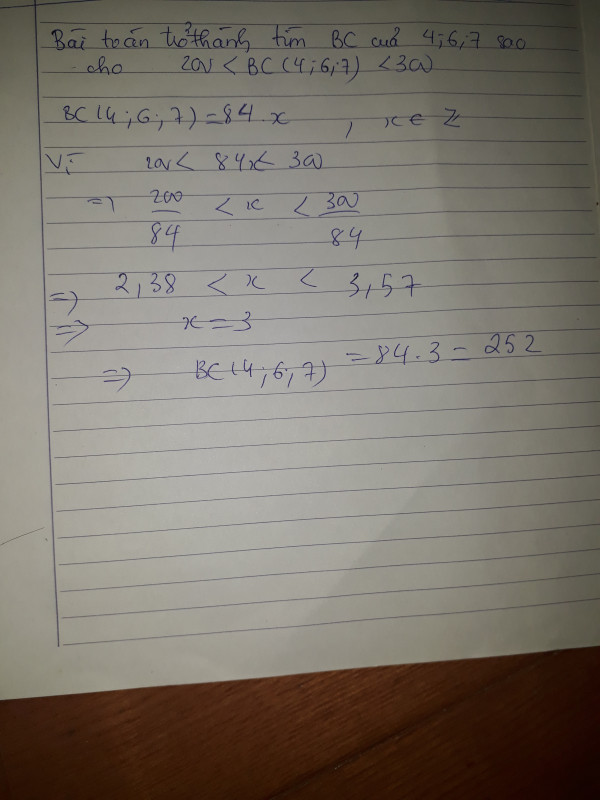 Bài toán trở thành tìm BC của 4;6;7 sao
cho 200 < BC(4;6;7) < 300
BC(4;6;7) = 84.x , x ∈ Z
Vì 200 < 84x < 300
=> 200/84 < x < 300/84
=> 2,38 < x < 3,57
=> x = 3
=> BC(4;6;7) = 84.3 = 252